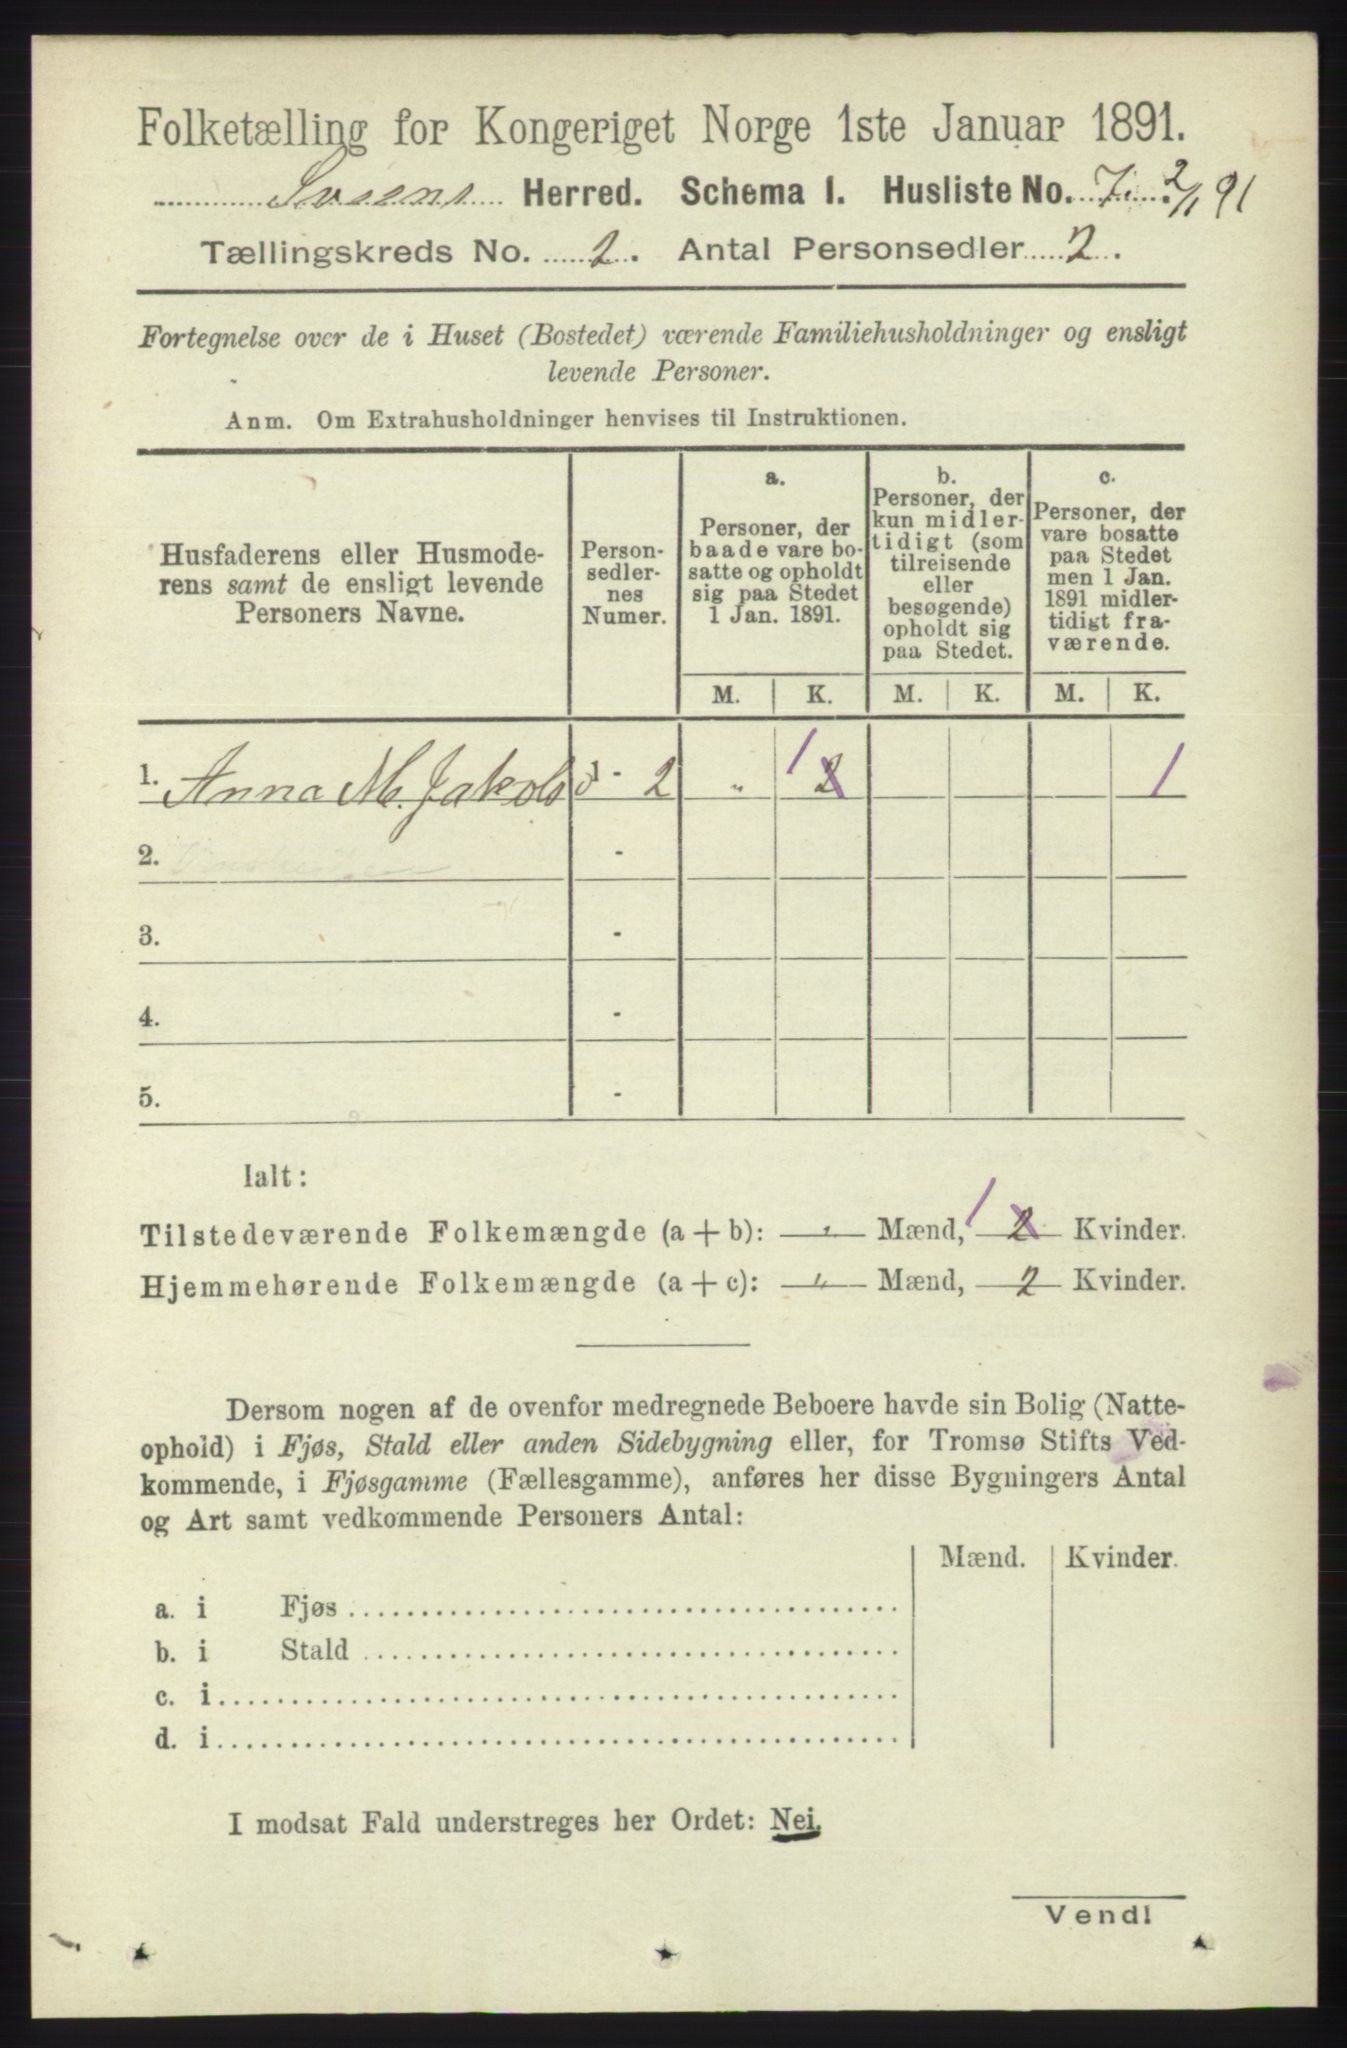 Folketælling for Kongeriget Norge 1ste Januar 1891.
Herred. Schema 1. Husliste No. 7. 2/1 91
Tællingskreds No. 2. Antal Personsedler 2.
Fortegnelse over de i Huset (Bostedet) værende Familiehusholdninger og ensligt
levende Personer.
Anm. Om Extrahusholdninger henvises til Instruktionen.
Husfaderens eller Husmode-
rens samt de ensligt levende
Personers Navne.
Person-
sedler-
nes
Numer.
a.
Personer, der
baade vare bo-
satte og opholdt
sig paa Stedet
1 Jan. 1891.
b.
Personer, der
kun midler-
tidigt (som
tilreisende
eller
besøgende)
opholdt sig
paa Stedet.
c.
Personer, der
vare bosatte
paa Stedet
men 1 Jan.
1891 midler-
tidigt fra-
værende.
M. K. M. K. M. K.
1. Anna M. Jakobsd 1 - 2 " 1 2 1
2. -
3. -
4. -
5. -
Ialt:
Tilstedeværende Folkemængde (a + b): " Mænd, 1 2 Kvinder.
Hjemmehørende Folkemængde (a + c): " Mænd, 2 Kvinder.
Dersom nogen af de ovenfor medregnede Beboere havde sin Bolig (Natte-
ophold) i Fjøs, Stald eller anden Sidebygning eller, for Tromsø Stifts Ved-
kommende, i Fjøsgamme (Fællesgamme), anføres her disse Bygningers Antal
og Art samt vedkommende Personers Antal:
Mænd. Kvinder.
a. i Fjøs
b. i Stald
c. i
d. i
I modsat Fald understreges her Ordet: Nei.
Vend!